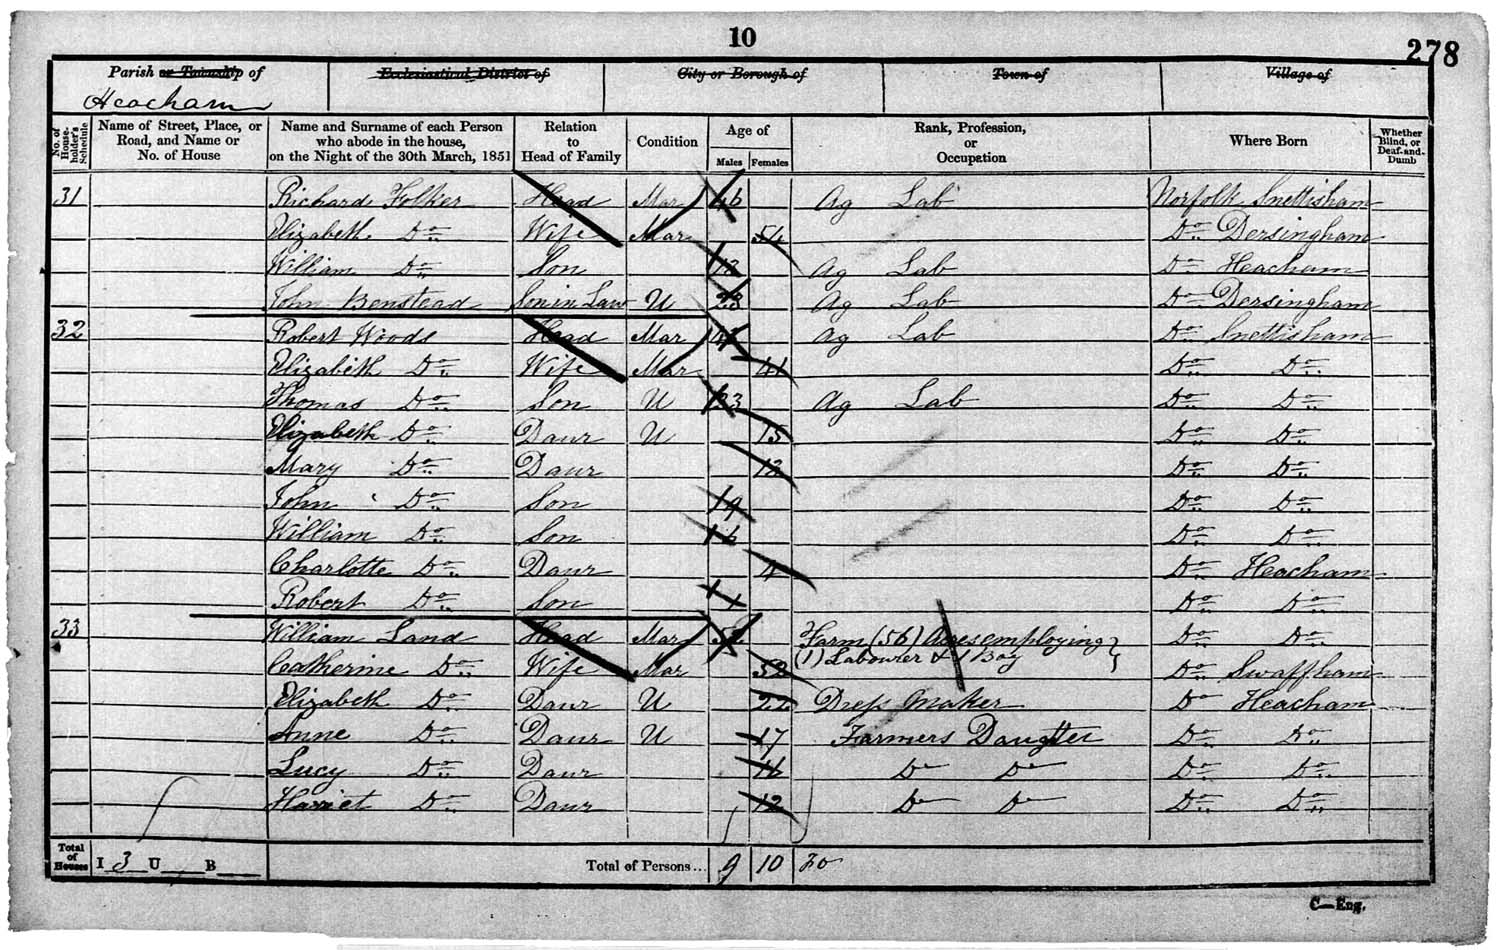 10
278
Parish or Township of Ecclesiastical District of City or Borough of Town of Village of
Heacham
No. of House-holder's Schedule Name of Street, Place, or Road, and Name or No. of House Name and Surname of each Person who abode in the house, on the Night of the 30th March, 1851 Relation to Head of Family Condition Age of Males Females Rank, Profession, or Occupation Where Born Whether Blind, or Deaf-and-Dumb
31 Richard Folker Head Mar 46 Ag Lab Norfolk Snettisham
Elizabeth Do Wife Mar 54 Do Dersingham
William Do Son Ag Lab Do Heacham
John Benstead Son in Law U 28 Ag Lab Do Dersingham
32 Robert Woods Head Mar Ag Lab Do Snettisham
Elizabeth Do Wife Mar Do Do
Thomas Do Son U 23 Ag Lab Do Do
Elizabeth Do Daur U 15 Do Do
Mary Do Daur 12 Do Do
John Do Son Do Do
William Do Son Do Do
Charlotte Do Daur 4 Do Heacham
Robert Do Son Do Do
33 William Land Head Mar Farm (56) Acres employing Do Do
(1) Labourer & 1 Boy
Catherine Do Wife Mar 52 Do Swaffham
Elizabeth Do Daur U 22 Dress Maker Do Heacham
Anne Do Daur U 17 Farmers Daugtter Do Do
Lucy Do Daur Do Do Do Do
Harriet Do Daur 12 Do Do Do Do
Total of Houses I 3 U B Total of Persons... 9 10
C—Eng.